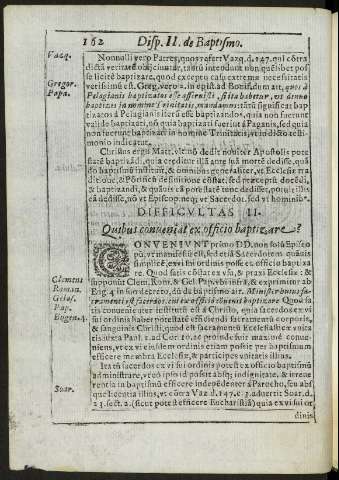 162 Disp. II. de Baptismo.
Vazq.
Nonnulli vero Patres, quos refert Vazq. d. 147. qui cōtra
dictā veritatē obijciuntur, tantū intendunt non quēlibet pos
se licitè baptizare, quod excepto casu extremæ necessitatis
Gregor.
Papa.
verissimū est. Greg. vero 2. in epist. ad Bonif. dum ait, quos à
Pelagianis baptizatos esse
baptizati in nomine Trinitatis, mandamus: tātū significat bap
tizatos à Pelagianis iterū esse baptizandos, quia non fuerunt
validè baptizati, nō quia baptizati fuerāt à Paganis, sed quia
non fuerunt baptizati in nomine Trinitatis, vt in dicto testi-
monio indicatur.
Christus ergo Matt. vlt. nō dedit noviter Apostolis potes
tatē baptizādi, quia creditur illā ante suā mortē dedisse, quā
do baptismū instituit, & omnibus generaliter, vt Ecclesiæ tra
ditione, & Pōtificū definitione cōstat, sed præceptū docēdi,
& baptizandi, & quāvis eā potestatē tunc dedisset, potuit illis
eā dedisse, nō vt Episcopi, neq; vt Sacerdot. sed vt hominib⁹
DIFFICVLTAS II.
Quibus conveniat ex officio baptizare?
CONVENIVNT primò DD. non solū Episco
pū, vt manifestū est, sed etiā Sacerdotem quāvis
simplicē ex vi sui ordinis posse ex officio baptiza
re. Quod satis cōstat ex vsu, & praxi Ecclesiæ: &
Clemens
Roman.
Gelas.
Pap.
Eugen. 4.
supponūt Clem. Rom. & Gel. Pap. vbi infrà, & exprimitur ab
Eug. 4. in suo decreto, dū de baptismo ait. Minister huius sa-
cramenti est sacerdos, cui ex officio cōpetit baptizare. Quod sa
tis convenienter institutū est à Christo, quia sacerdos ex vi
sui ordinis habet potestatē efficiendi sacramentū corporis,
& sanguinis Christi, quod est sacramentū Ecclesiasticæ vnita
tis iuxta Paul. 1. ad Cor. 10. ac proindè fuit maximè conve-
niens, vt ex vi eiusdem ordinis etiam posset per baptismum
efficere membra Ecclesiæ, & participes vnitatis illius.
Ita tñ sacerdos ex vi sui ordinis potest ex officio baptismū
administrare, vt eo ipso id possit absq; indignitate, & irreve
rentia in baptismū efficere independēter à Parocho, seu abs
Suar.
que licentia illius, vt cōtra Vaz d. 147. c. 3. advertit Suar. d.
23. sect. 2. (sicut potest efficere Eucharistiā) quia ex vi sui or
dinis